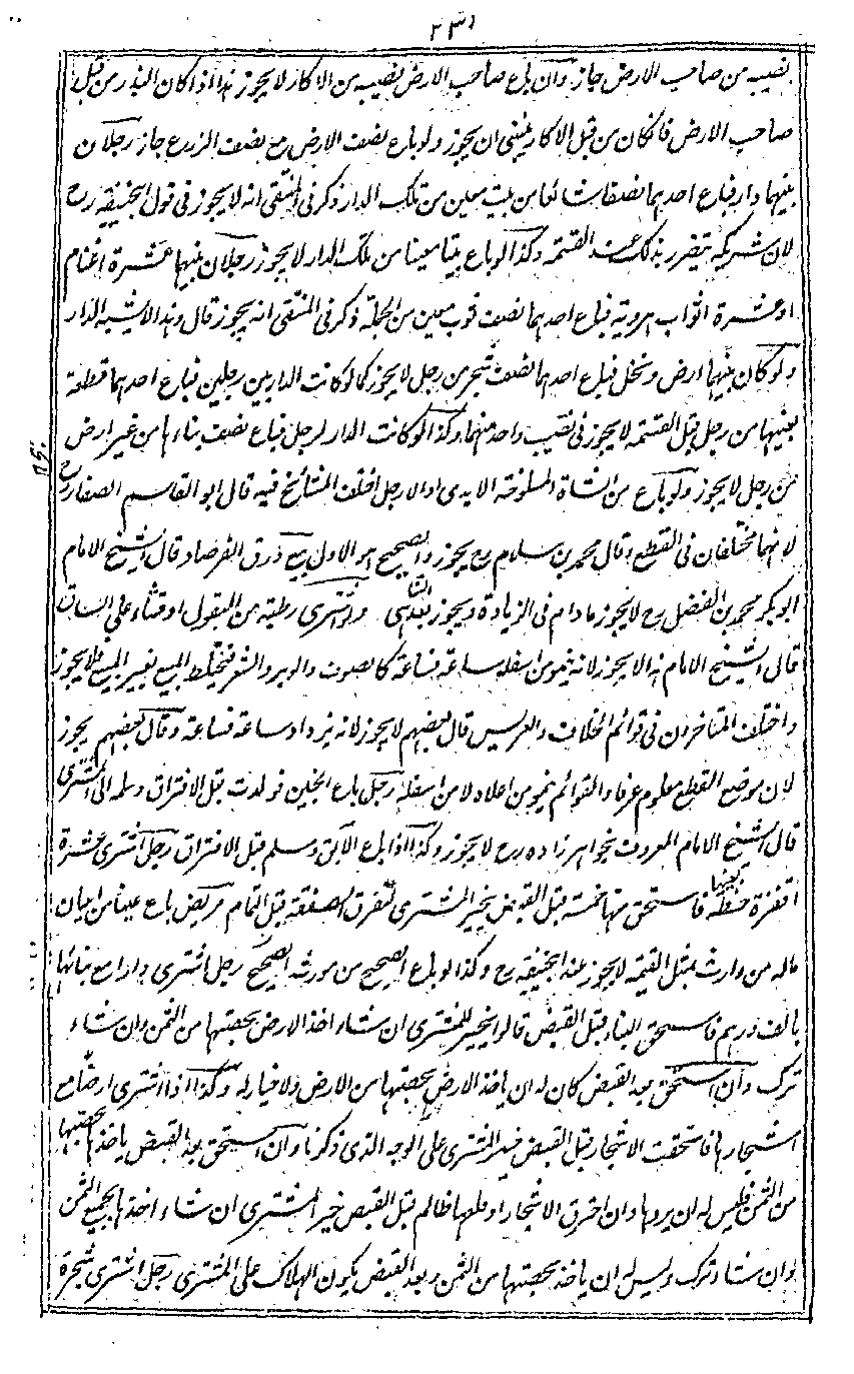 ٢٣١
نصيبه من صاحب الارض جاز وان باع صاحب الارض نصيبه من الاكار لا يجوز هذا اذا كان البذر من قبل
صاحب الارض فانكان من قبل الاكار ينبغى ان يجوز ولو باع نصف الارض مع نصف الزرع جاز رجلان
بينهما دار فباع احدهما نصفا شائعا من بيت معين من تلك الدار ذكر فى المنتقى انه لا يجوز فى قول ابيحنيفة رح
لان شريكه يتضرر بذلك عند القسمة وكذا لو باع بيتا معينا من تلك الدار لا يجوز رجلان بينهما عشرة اغنام
او عشرة اثواب هروية فباع احدهما نصف ثوب معين من الجملة ذكر فى المنتقى انه يجوز قال وهذا لا يشبه الدار
ولو كان بينهما ارض ونخل فباع احدهما نصف شجر من رجل لا يجوز كما لو كانت الدار بين رجلين فباع احدهما قطعة
بعينها من رجل قبل القسمة لا يجوز فى نصيب واحد منهما وكذا لو كانت الدار لرجل فباع نصف بناءها من غير ارض
من رجل لا يجوز ولو باع من الشاة المسلوخة الايدى او الارجل اختلف المشائخ فيه قال ابو القاسم الصفار رح
لانهما مختلفان فى القطع وقال محمد بن سلام رح يجوز والصحيح هو الاول بيع ورق الفرصاد قال الشيخ الامام
ابو بكر محمد بن الفضل رح لا يجوز مادام فى الزيادة ويجوز بعد التناهى ولو اشترى رطبة من البقول او قثاء على الساق
قال الشيخ الامام هذا لا يجوز لانه ينمو من اسفله ساعة فساعة كالصوف والوبر والشعر فيختلط المبيع بغير المبيع فلا يجوز
واختلف المتاخرون فى قوائم الخلاف والغريس قال بعضهم لا يجوز لانه يزداد ساعة فساعة وقال بعضهم يجوز
لان موضع القطع معلوم عرفا والقوائم ينمو من اعلاه لا من اسفله رجل باع الجنين فولدت قبل الافتراق وسلمه الى المشترى
قال الشيخ الامام المعروف بخواهرزاده رح لا يجوز وكذا اذا باع الآبق وسلم قبل الافتراق رجل اشترى عشرة
اقفزة حنطة بعينها فاستحق منها خمسة قبل القبض يخير المشترى لتفرق الصفقة قبل التمام مريض باع عينا من اعيان
ماله من وارث بمثل القيمة لا يجوز عند ابيحنيفة رح وكذا لو باع الصحيح من مورثه الصحيح رجل اشترى دارا مع بنائها
بالف درهم فاستحق البناء قبل القبض قالوا يخير المشترى ان شاء اخذ الارض بحصتها من الثمن وان شاء
ترك وان استحق بعد القبض كان له ان ياخذ الارض بحصتها من الارض ولا خيار له وكذا اذا اشترى ارضا مع
اشجارها فاستحقت الاشجار قبل القبض فيخير المشترى على الوجه الذى ذكرنا وان استحق بعد القبض ياخذها بحصتها
من الثمن فليس له ان يردها وان احرق الاشجار او قلعها ظالم قبل القبض خير المشترى ان شاء اخذها بجميع الثمن
وان شاء ترك وليس له ان ياخذ بحصتها من الثمن وبعد القبض يكون الهلاك على المشترى رجل اشترى شجرة